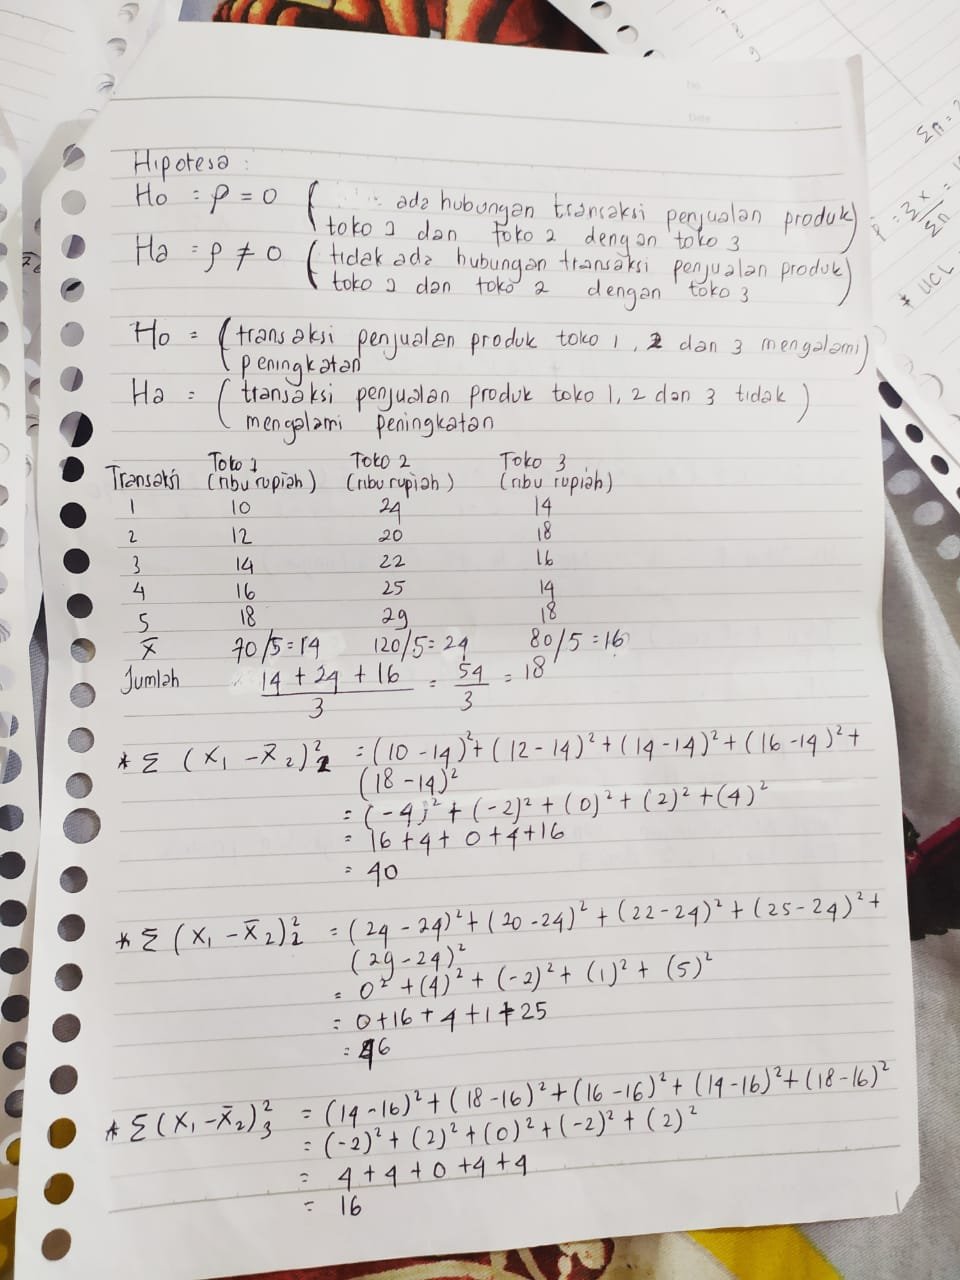 Hipotesa :
Ho = ρ = 0 ( ada hubungan transaksi penjualan produk)
toko 1 dan toko 2 dengan toko 3
Ha = ρ ≠ 0 ( tidak ada hubungan transaksi penjualan produk)
toko 1 dan toko 2 dengan toko 3
Ho = ( transaksi penjualan produk toko 1, 2 dan 3 mengalami)
peningkatan
Ha = ( transaksi penjualan produk toko 1, 2 dan 3 tidak )
mengalami peningkatan
Transaksi Toko 1 (ribu rupiah) Toko 2 (ribu rupiah) Toko 3 (ribu rupiah)
1 10 24 14
2 12 20 18
3 14 22 16
4 16 25 14
5 18 29 18
x̄ 70/5 = 14 120/5 = 24 80/5 = 16
Jumlah 14 + 24 + 16 / 3 = 54 / 3 = 18
* Σ (X₁ - X̄₂)²₁ = (10 - 14)² + (12 - 14)² + (14 - 14)² + (16 - 14)² +
(18 - 14)²
= (-4)² + (-2)² + (0)² + (2)² + (4)²
= 16 + 4 + 0 + 4 + 16
= 40
* Σ (X₁ - X̄₂)²₂ = (24 - 24)² + (20 - 24)² + (22 - 24)² + (25 - 24)² +
(29 - 24)²
= 0² + (4)² + (-2)² + (1)² + (5)²
= 0 + 16 + 4 + 1 + 25
= 46
* Σ (X₁ - X̄₂)²₃ = (14 - 16)² + (18 - 16)² + (16 - 16)² + (14 - 16)² + (18 - 16)²
= (-2)² + (2)² + (0)² + (-2)² + (2)²
= 4 + 4 + 0 + 4 + 4
= 16
No.
Date
* UCL